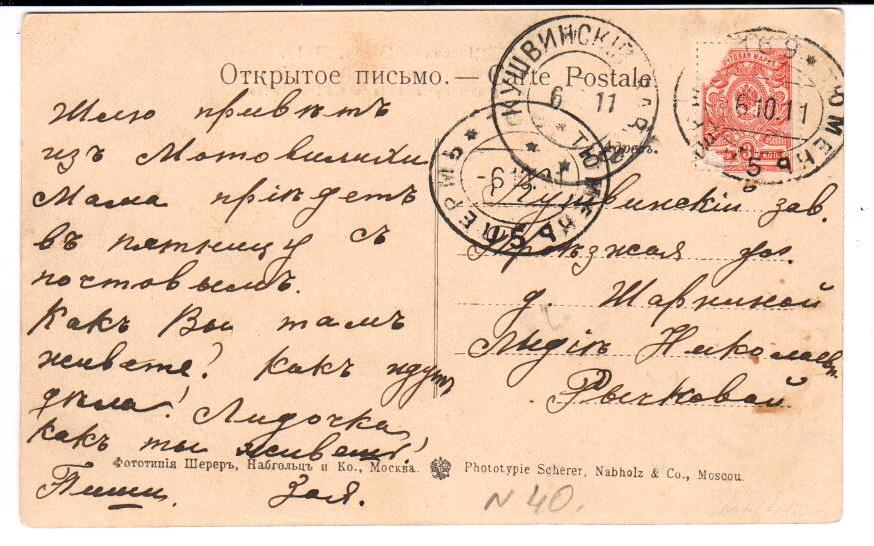 Открытое письмо. — Carte Postale
Шлю приветъ
изъ Мотовилихи
Мама пріѣдетъ
въ пятницу съ
почтовымъ.
Какъ Вы тамъ
живете? Какъ идутъ
дѣла! Лидочка,
какъ ты живешь!
Пиши Зоя.
КУШВИНСКІЙ ЗАВ.
6 11
ПЕРМЬ * ТЮМЕНЬ
5
169 * ТЮМЕНЬ
6.10.11
5 Я
Адресъ.
Кушвинскій зав.
Проѣзжая ул.
д. Шаркиной
Лидіи Николаевн.
Рычковой
Фототипія Шереръ, Набгольцъ и Ко., Москва. Phototypie Scherer, Nabholz & Co., Moscou.
N 40.